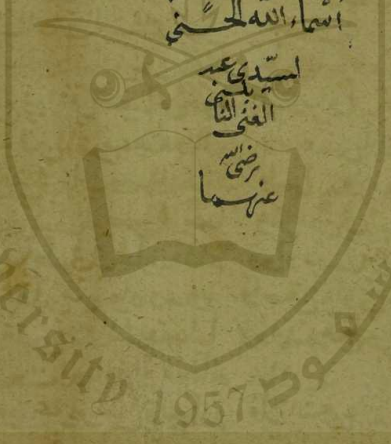 أسماء الله الحسنى
لسيّدي عبد
بلسي
الغني النا
رضي الله
عنهما
ersity 1957 سعود